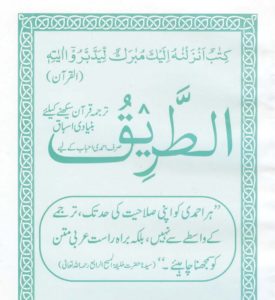 كِتٰبٌ اَنْزَلْنٰهُ اِلَيْكَ مُبٰرَكٌ لِّيَدَّبَّرُوْۤا اٰيٰتِهٖ
(القرآن)
ترجمہ قرآن سیکھنے کیلئے
بنیادی اسباق
الطَّرِيْقُ
صرف احمدی احباب کے لیے
”ہر احمدی کو اپنی صلاحیت کی حد تک، ترجمے
کے واسطے سے نہیں، بلکہ براہ راست عربی متن
کو سمجھنا چاہیئے۔“ (سیدنا حضرت خلیفۃ المسیح الرابع رحمہ اللہ تعالیٰ)